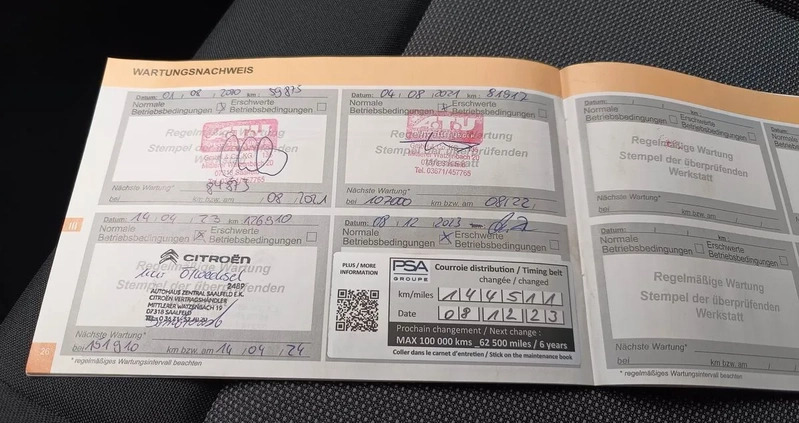 WARTUNGSNACHWEIS
Datum: 01 / 08 / 2020 km: 59875
Normale Betriebsbedingungen
Erschwerte Betriebsbedingungen
Regelmäßige Wartung
07318
84873
Nächste Wartung*
08 / 2021
Datum: 04 / 08 / 2021 km: 81917
Normale Betriebsbedingungen
Erschwerte Betriebsbedingungen
Regelmäßige Wartung
Stempel der überprüfenden Werkstatt
Mittlerer Watzenbach 20
Tel. 03671/457765
Nächste Wartung*
bei 107000 km bzw. am 08/22
Datum: / / km
Normale Betriebsbedingungen
Erschwerte Betriebsbedingungen
Regelmäßige Wartung
Stempel der überprüfenden
Werkstatt
Nächste Wartung*
bei km bzw. am / /
III
Datum: 14 / 04 / 23 km 126910
Normale Betriebsbedingungen
Erschwerte Betriebsbedingungen
CITROËN
Regelmäßige Wartung
nur Ölwechsel
Stempel der überprüfenden
2489
AUTOHAUS ZENTRAL SAALFELD E.K.
CITROËN VERTRAGSHÄNDLER
MITTLERER WATZENBACH 19
07318 SAALFELD
Nächste Wartung*
bei 151910 km bzw. am 14 / 04 / 24
Datum: 08 / 12 / 2023
Normale Betriebsbedingungen
Erschwerte Betriebsbedingungen
PLUS / MORE
INFORMATION
PSA
GROUPE
Courroie distribution / Timing belt
changée / changed
km/miles 144511
Date 08 12 23
Prochain changement / Next change :
MAX 100 000 kms _62 500 miles / 6 years
Coller dans le carnet d'entretien / Stick on the maintenance book
Normale Betriebsbedingungen
Erschwerte Betriebsbedingungen
Regelmäßige Wartung
Stempel der überprüfenden
Werkstatt
Nächste Wartung*
bei km bzw. am / /
26
* regelmäßiges Wartungsintervall beachten
* regelmäßiges Wartungsintervall beachten